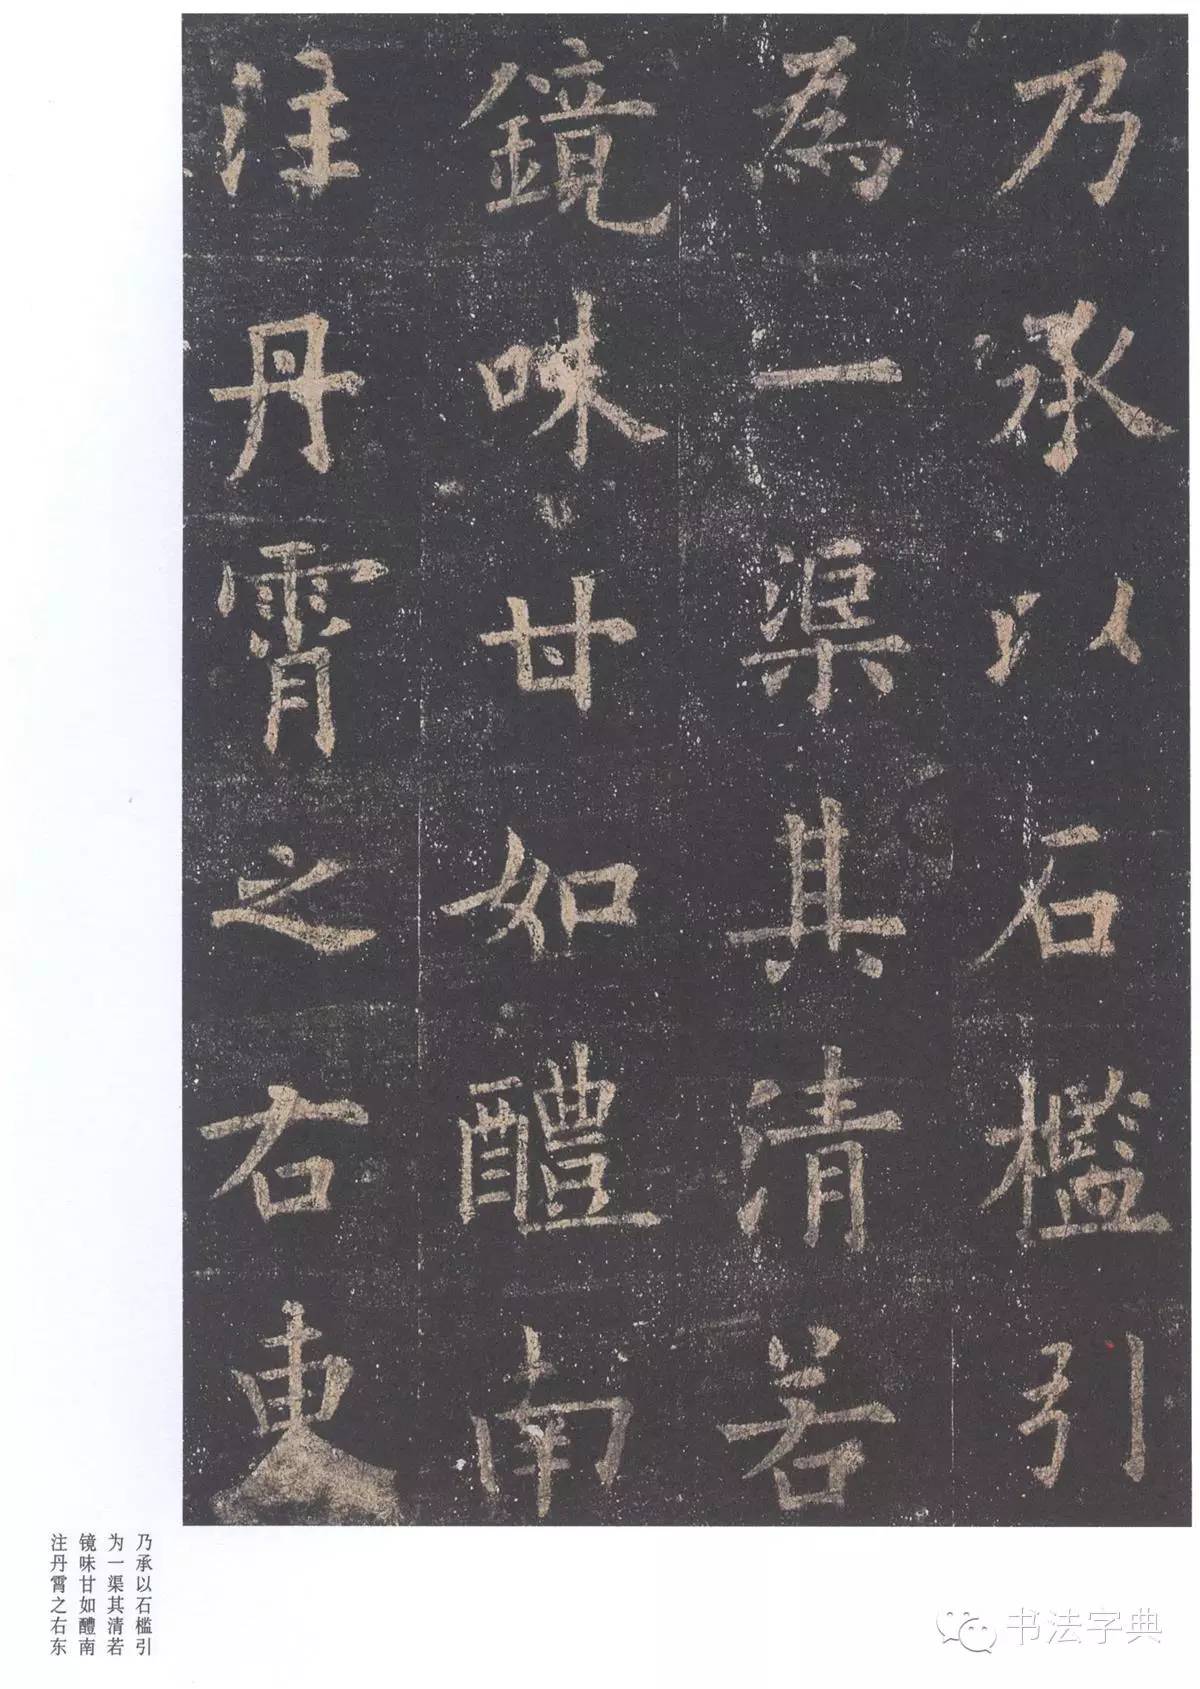 乃承以石檻引
為一渠其清若
鏡味甘如醴南
注丹霄之右東
乃承以石槛引
为一渠其清若
镜味甘如醴南
注丹霄之右东
书法字典